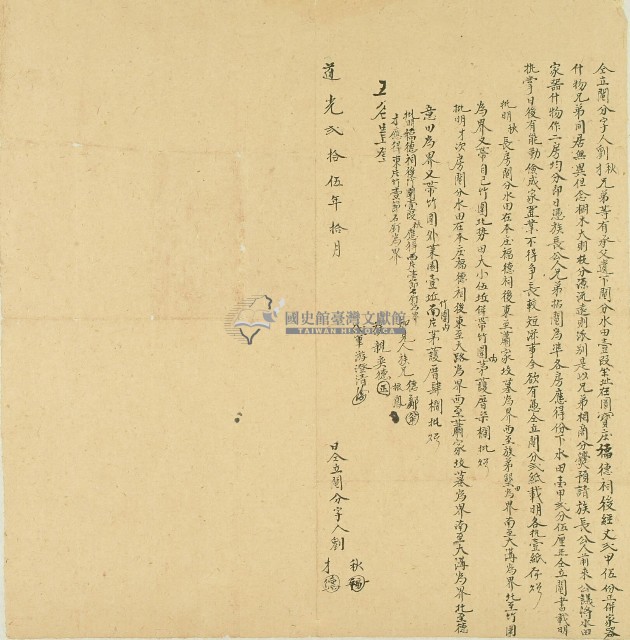 仝立鬮分字人劉秋才兄弟等有承父遺下鬮分水田壹段坐址在圓寶庄福德祠後經丈弍甲伍份正併家器
什物兄弟同居無異但念樹木大則枝分源流遠則派別是以兄弟相商分爨預請族長公人前來公議將水田
家器什物作二房均分即日憑族長公人兄弟拈鬮為準各房應得份下水田壹甲弍分伍厘正仝立鬮書載明
批掌日後有能勤儉成家置業不得爭長較短滋事今欲有憑仝立鬮分弍紙載明各執壹紙存炤
批明秋長房鬮分水田在本庄福德祠後東至蕭家坟墓為界西至族弟竪為界南至大溝為界北至竹圍
為界又帶自己竹圍北勢田大小伍坵併帶竹圍內茅護厝柒欄批炤
批明才次房鬮分水田在本庄福德祠後東至大路為界西至蕭家坟墓為界南至大溝為界北至德
意田為界又帶竹圍外菜園壹坵南片竹圍內茅護厝肆欄批炤
五谷豊登
批明福德祠後竹圍壹段秋應得西片壹節石釘為界
才應得東片竹壹節石釘為界
在見人族兄 德鄰
振恩
族親奕德
代筆游澄清
道光弍拾伍年拾月 日仝立鬮分字人劉秋才
國史館臺灣文獻館
TAIWAN HISTORICA